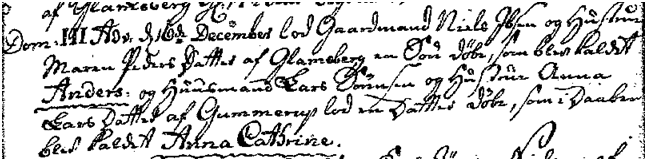 af Glamsbierg
Dom: III Adv. d. 16de December lod Gaardmand Niels Ibsen og Hustrue
Maren Peders Datter af Glamsberg en Søn døbe, som blev kaldet
Anders: og Huusmand Lars Sørensen og Hustrue Anna
Lars Datter af Gummerup lod en Datter døbe, som i Daaben
blev kaldet Anna Cathrine.